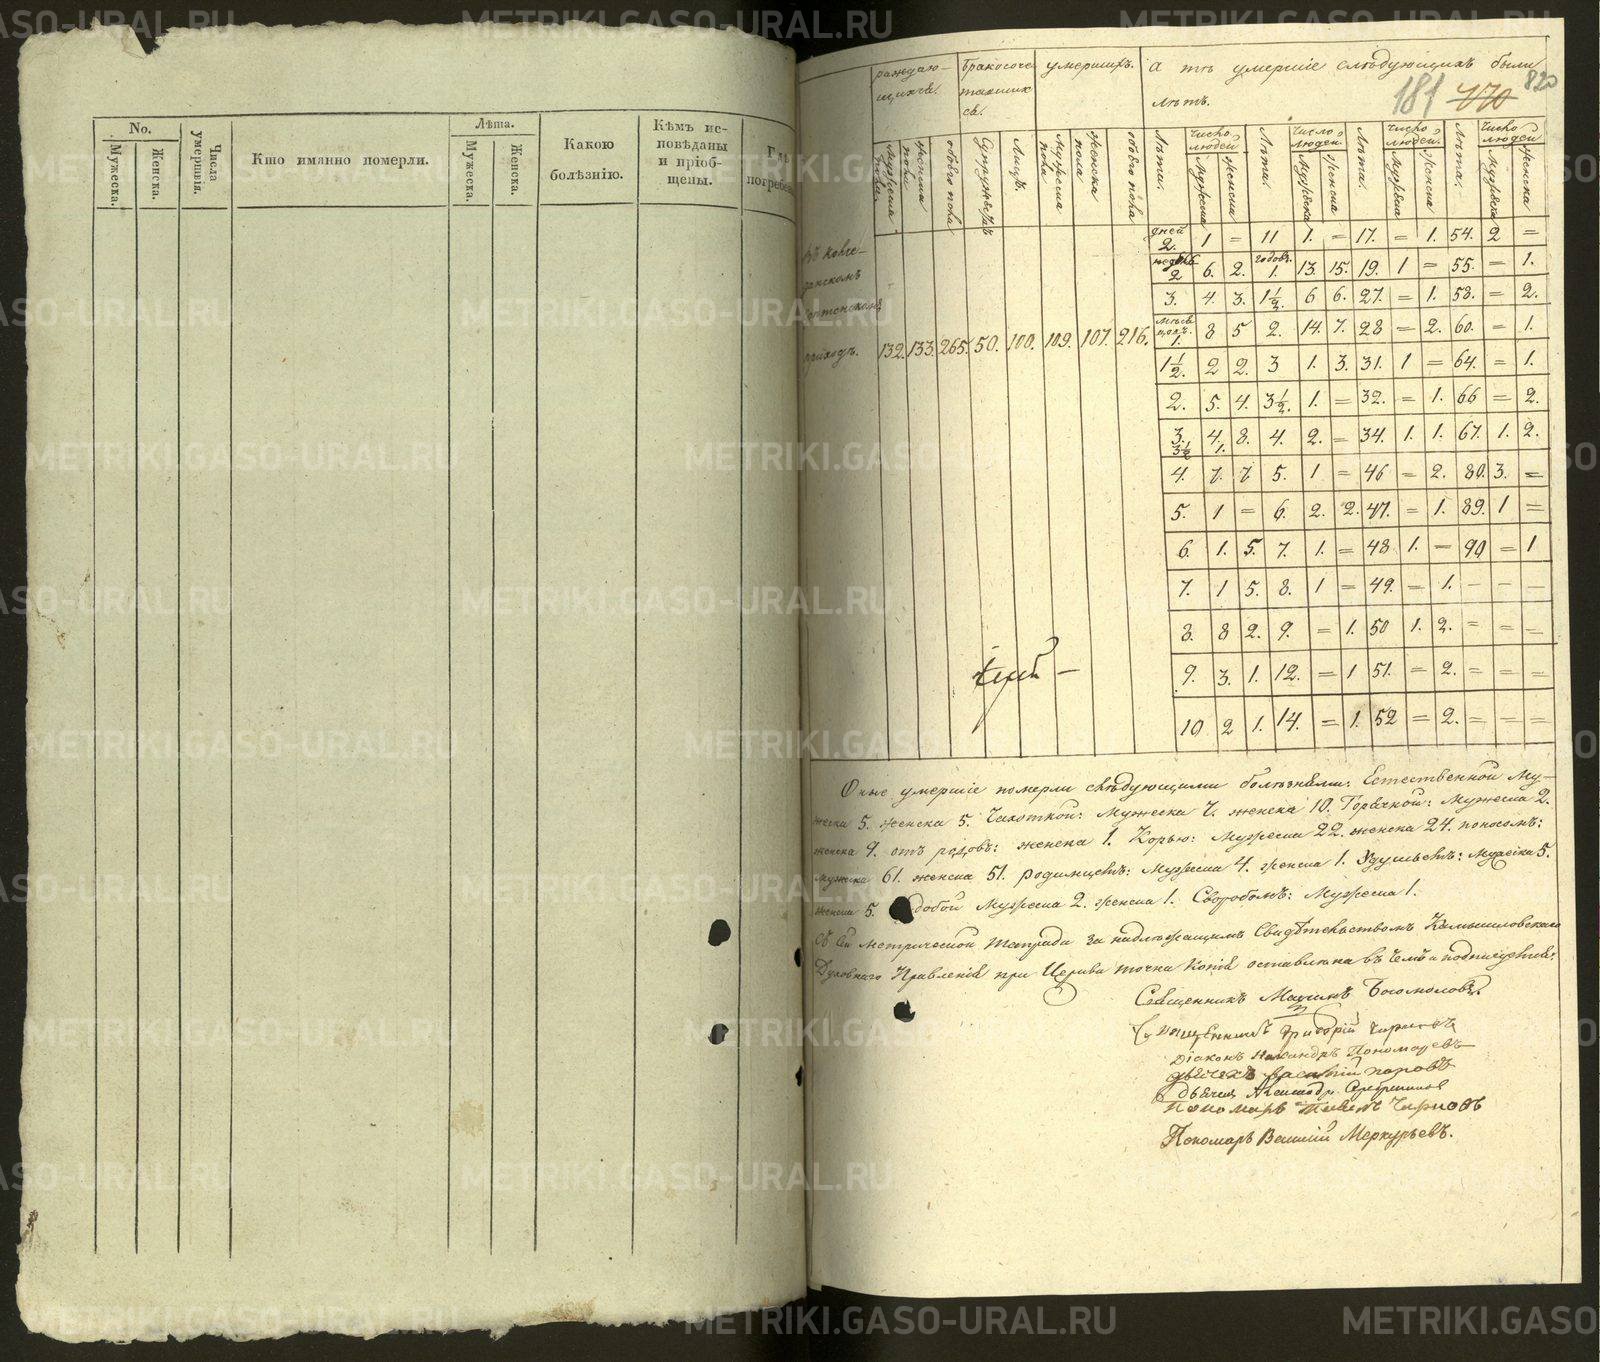 No.
Мужеска.
Женска.
Числа умершвія.
Кто имянно померли.
Лѣта.
Мужеска.
Женска.
Какою болѣзнію.
Кѣмъ исповѣданы и пріобщены.
погребе
181 770 820
раждаю-щихся.
бракосочетавшихся.
умершихъ.
а тѣ умершіе слѣдующихъ были лѣтъ.
женска пола
обоего пола
Супружествъ
Лицъ.
мужеска пола
женска пола
обоего пола
Лѣта. число людей мужеска женска
Лѣта. число людей. мужеска женска
Лѣта. число людей. мужеска женска
Лѣта. число людей мужеска женска
приходѣ. 132. 133. 265. 50. 100. 109. 107. 216.
дней 2. 1 = 11 1. = 17. = 1. 54. 2 =
2 6. 2. годовъ. 1. 13. 15. 19. 1 = 55. = 1.
3. 4. 3. 1½. 6 6. 27. = 1. 58. = 2.
1. 8 5 2. 14. 7. 28 = 2. 60. = 1.
1½. 2 2. 3 1. 3. 31. 1 = 64. = 1.
2. 5. 4. 3½. 1. = 32. = 1. 66 = 2.
3. 4. 8. 4. 2. = 34. 1. 1. 67. 1. 2.
3½ 1.
4. 7. 7 5. 1 = 46 = 2. 80. 3. =
5. 1 = 6. 2. 2. 47. = 1. 89. 1 =
6. 1. 5. 7. 1. = 48 1. = 90 = 1
7. 1 5. 8. 1 = 49. = 1. - - -
8. 8 2. 9. = 1. 50 1. 2. = = =
9. 3. 1. 12. = 1 51. = 2. = = =
10 2 1. 14. = 1. 52 = 2. = = =
Оные умершіе померли слѣдующими болѣзнями: Естественной му-
жеска 5. женска 5. Чахоткой: Мужеска 7. женска 10. Горячкой: Мужеска 2.
женска 9. отъ родовъ: женска 1. Корью: Мужеска 22. женска 24. поносомъ:
мужеска 61. женска 51. родимцемъ: Мужеска 4. женска 1. Удушьемъ: Мужеска 5.
женска 5. добой Мужеска 2. женска 1. Мужеска 1.
Съ сей метрической тетради за надлежащимъ Свидѣтельствомъ Камышловскаго
Духовнаго Правленія при Церкви точна Копія оставлена въ чемъ и подписуемся:
Священникъ Богомоловъ.
Священникъ Григорій Чирковъ
Діаконъ Пономаревъ
Василій Поповъ
Александръ
Пономарь Чирковъ
Пономарь Василій Меркурьевъ.
METRIKI.GASO-URAL.RU